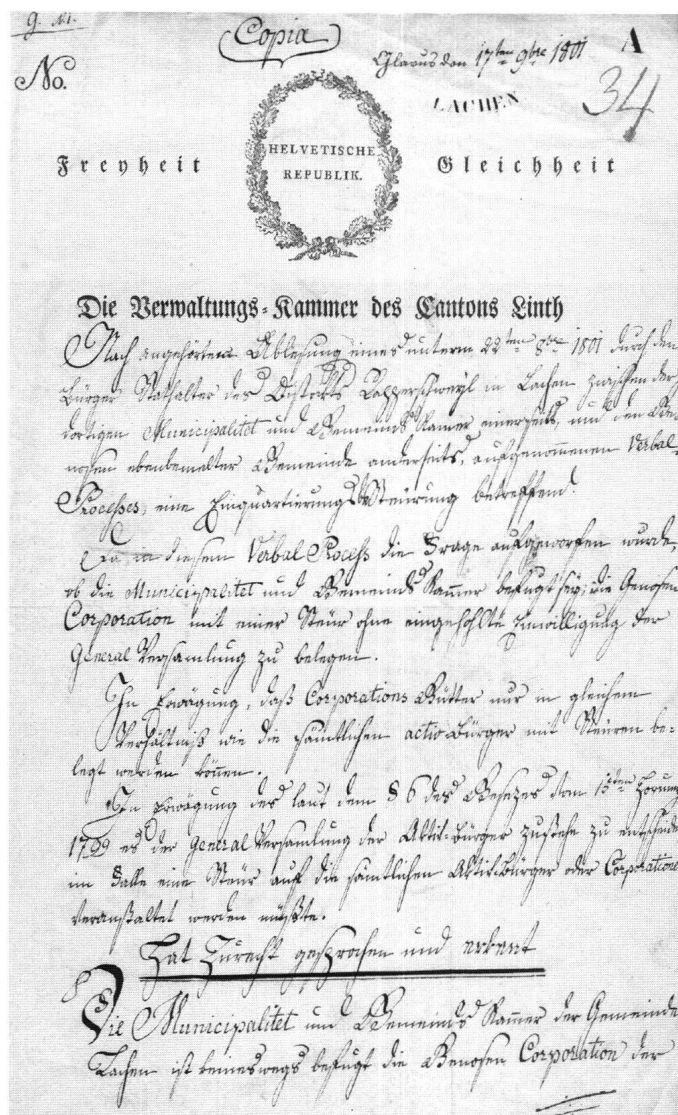 Copia
Glarus den 17ten 9bre 1801
A
No.
LACHEN
34
Freyheit
HELVETISCHE
REPUBLIK.
Gleichheit
Die Verwaltungs-Kammer des Cantons Linth
Nach angehörter Ablesung eines unterm 22ten 8bre 1801 durch den
Bürger Statthalter des Districts Rapperschweyl in Lachen zwischen der
dortigen Municipalitet und Gemeinds Kamer einerseits, und den Ge-
nosen ebenbemelter Gemeinde anderseits, aufgenommenen Verbal-
Processes, eine Einquartierungs Steurung betreffend.
Da in diesem Verbal Process die Frage aufgeworfen wurde,
ob die Municipalitet und Gemeinds Kammer befugt sey, die Genosen
Corporation mit einer Steur ohne eingeholte Einwilligung der
General Versamlung zu belegen.
In Erwägung, daß Corporations Gütter nur in gleichem
Verhältniß wie die sämtlichen activ Bürger mit Steuren be-
legt werden können.
In Erwägung des laut dem § 6 des Gesezes vom 13ten Hornung
1799 es der General Versamlung der Aktiv-bürger zustehe zu entscheiden
im Falle eine Steur auf die sämtlichen Aktiv-Bürger oder Corporationen
veranstaltet werden müßte.
Hat Zurecht gesprochen und erkent
Die Municipalitet und Gemeinds Kammer der Gemeinde
Lachen ist keineswegs befugt die Genosen Corporation der